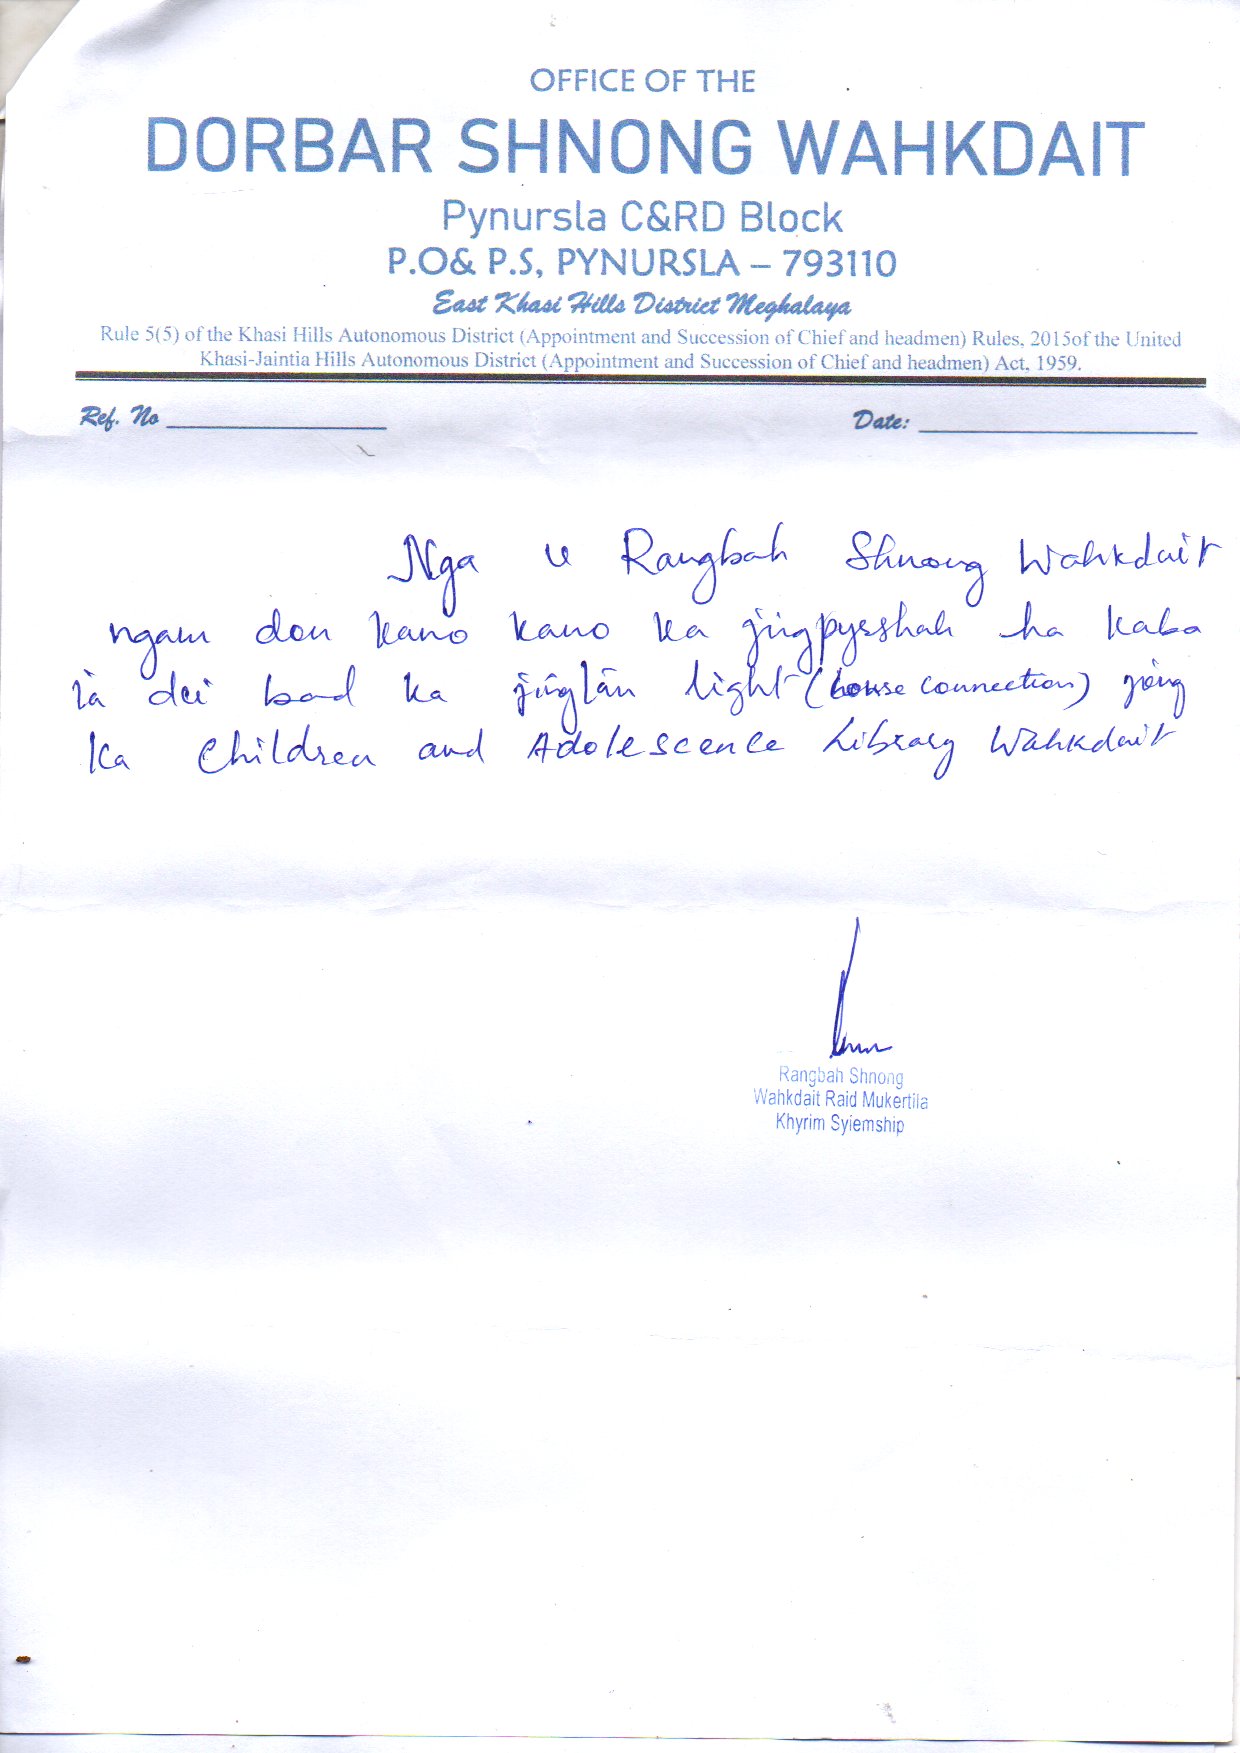 OFFICE OF THE
DORBAR SHNONG WAHKDAIT
Pynursla C&RD Block
P.O& P.S, PYNURSLA – 793110
East Khasi Hills District Meghalaya
Rule 5(5) of the Khasi Hills Autonomous District (Appointment and Succession of Chief and headmen) Rules, 2015of the United
Khasi-Jaintia Hills Autonomous District (Appointment and Succession of Chief and headmen) Act, 1959.
Ref. No
Date:
Nga u Rangbah Shnong Wahkdait
ngam don kano kano ka jingpyrshah ha kaba
ïa dei bad ka jinglān light (house connection) jong
ka Children and Adolescence Library Wahkdait
Rangbah Shnong
Wahkdait Raid Mukertila
Khyrim Syiemship